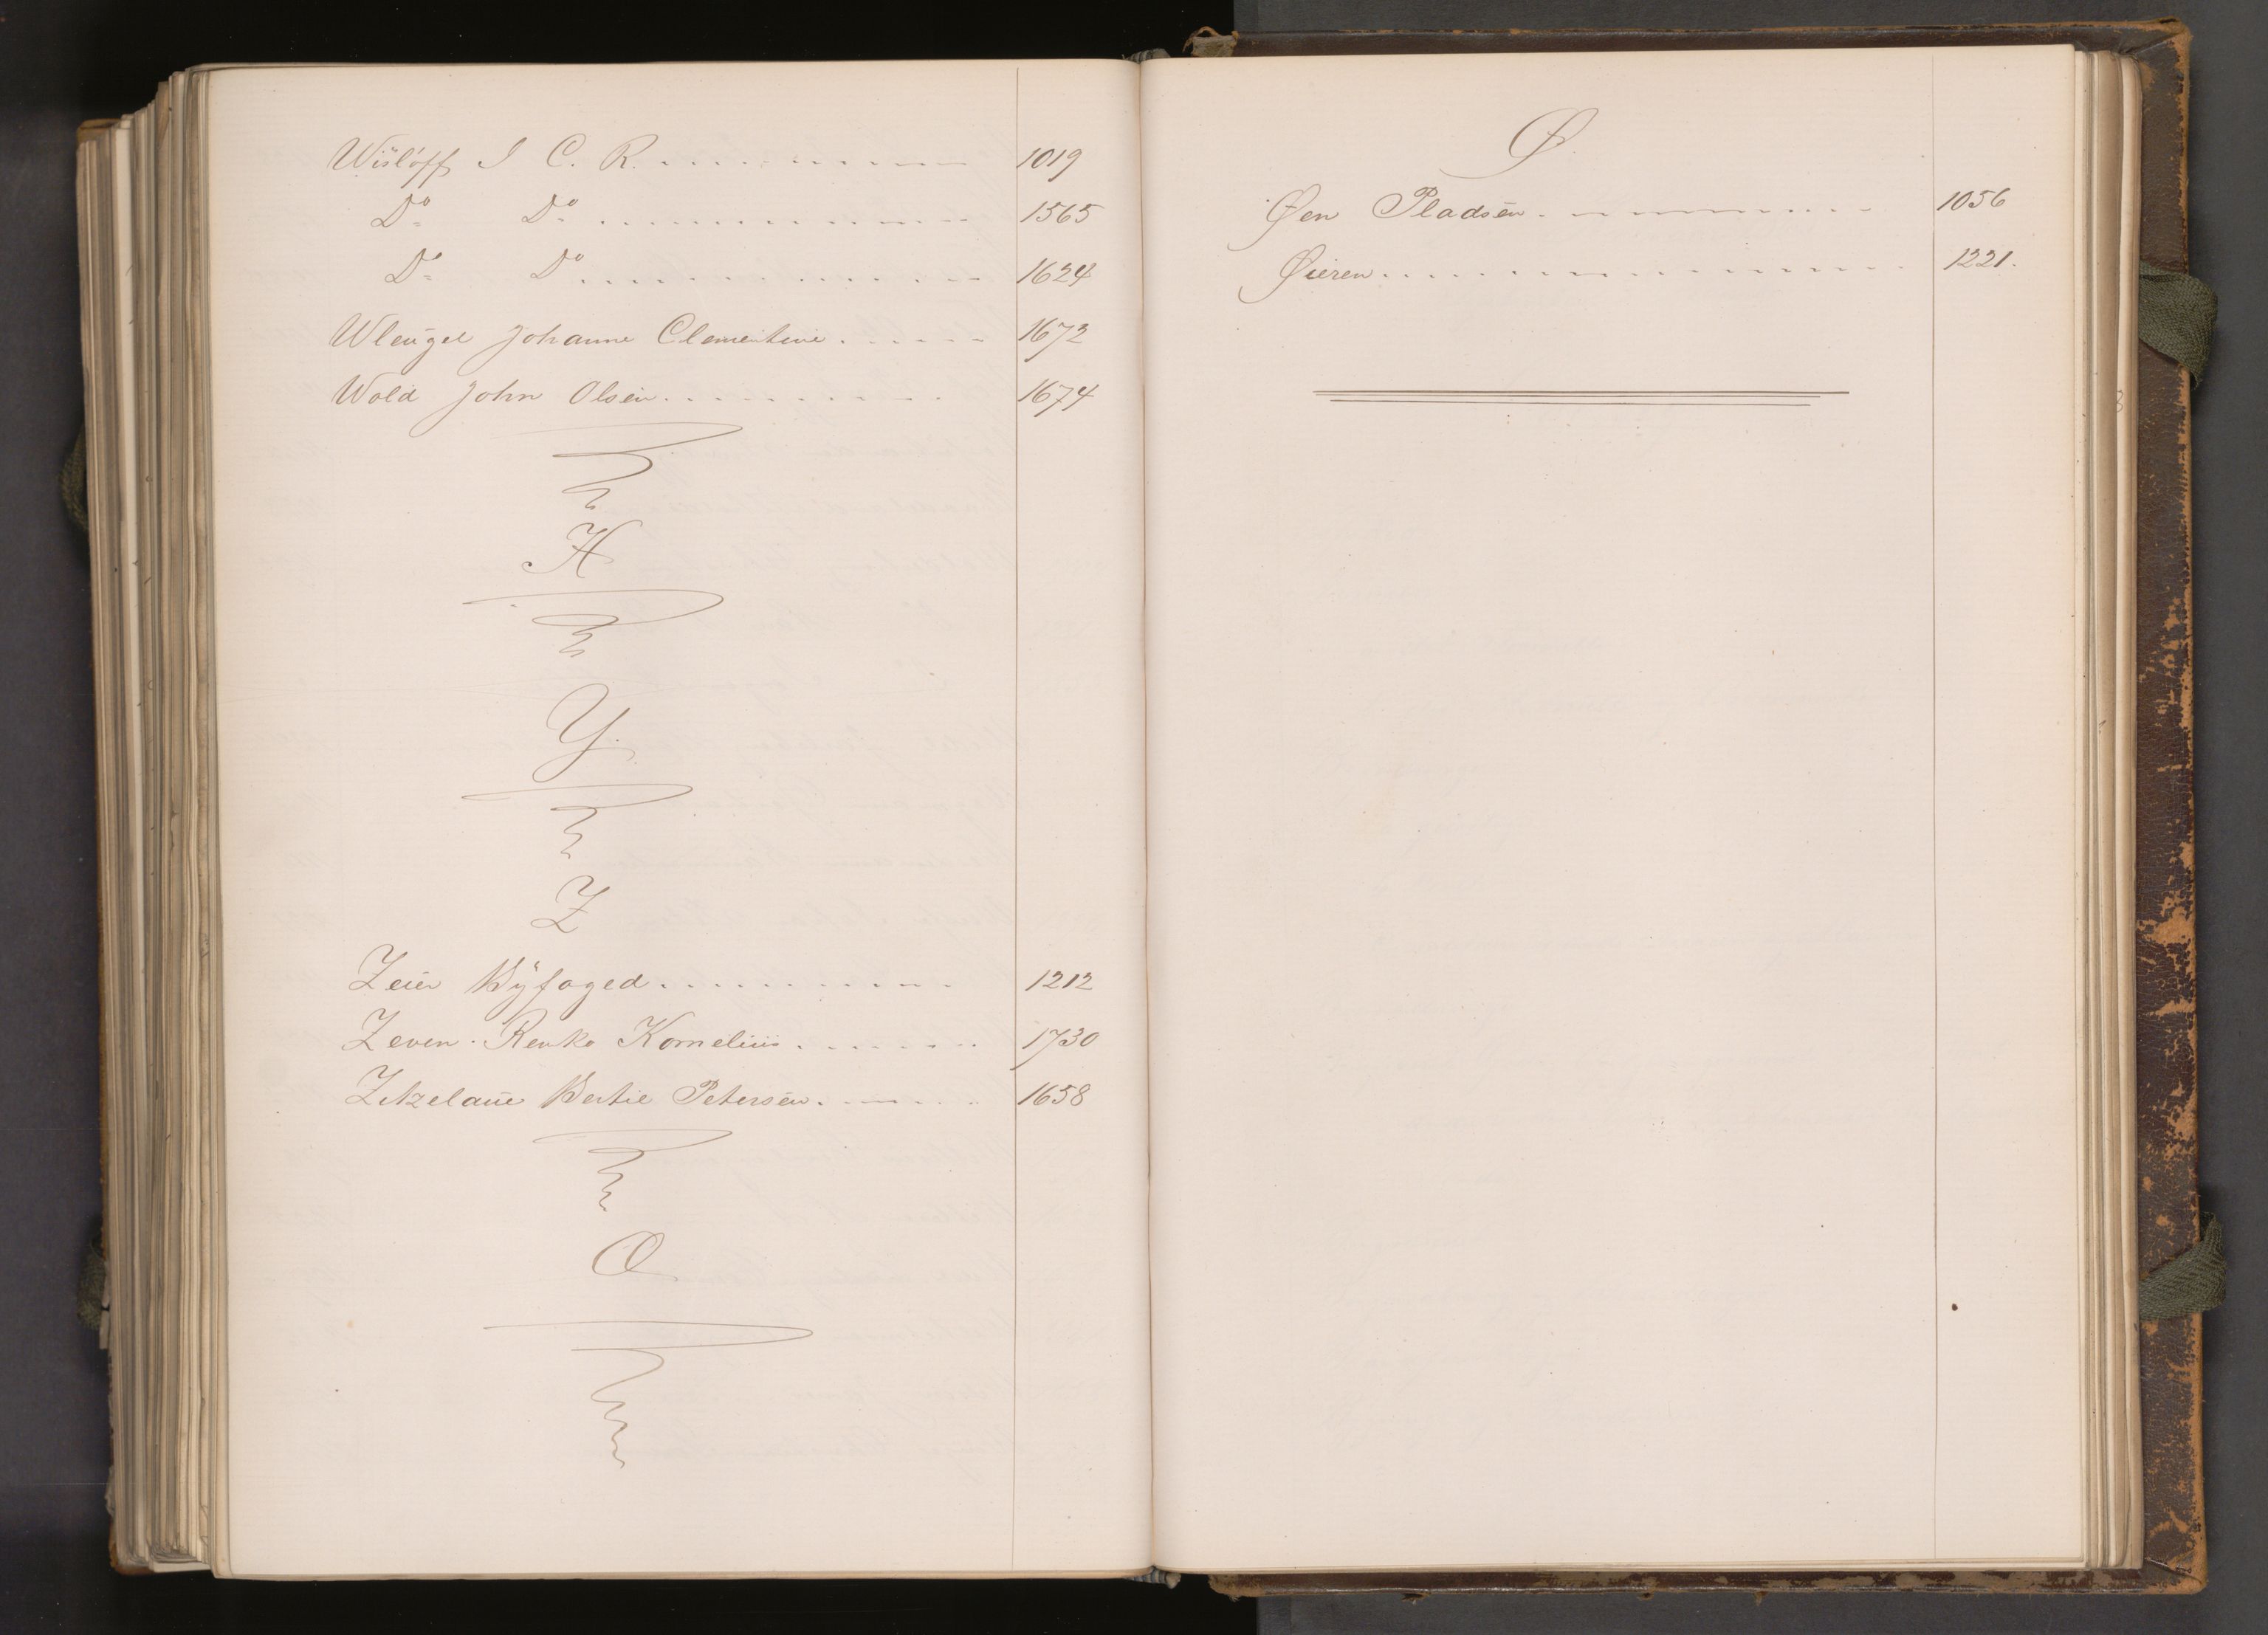 Wisløff I C. R. 1019
Do Do 1565
Do Do 1624
Wleugel Johanne Clementine 1672
Wold John Olsen 1674
X
Y.
Z
Zeier Byfoged 1212
Zeven Renko Kornelius 1730
Zetzelaue Bertie Petersen 1658
Æ
Ø.
Øen Pladsen 1056
Øieren 1221.